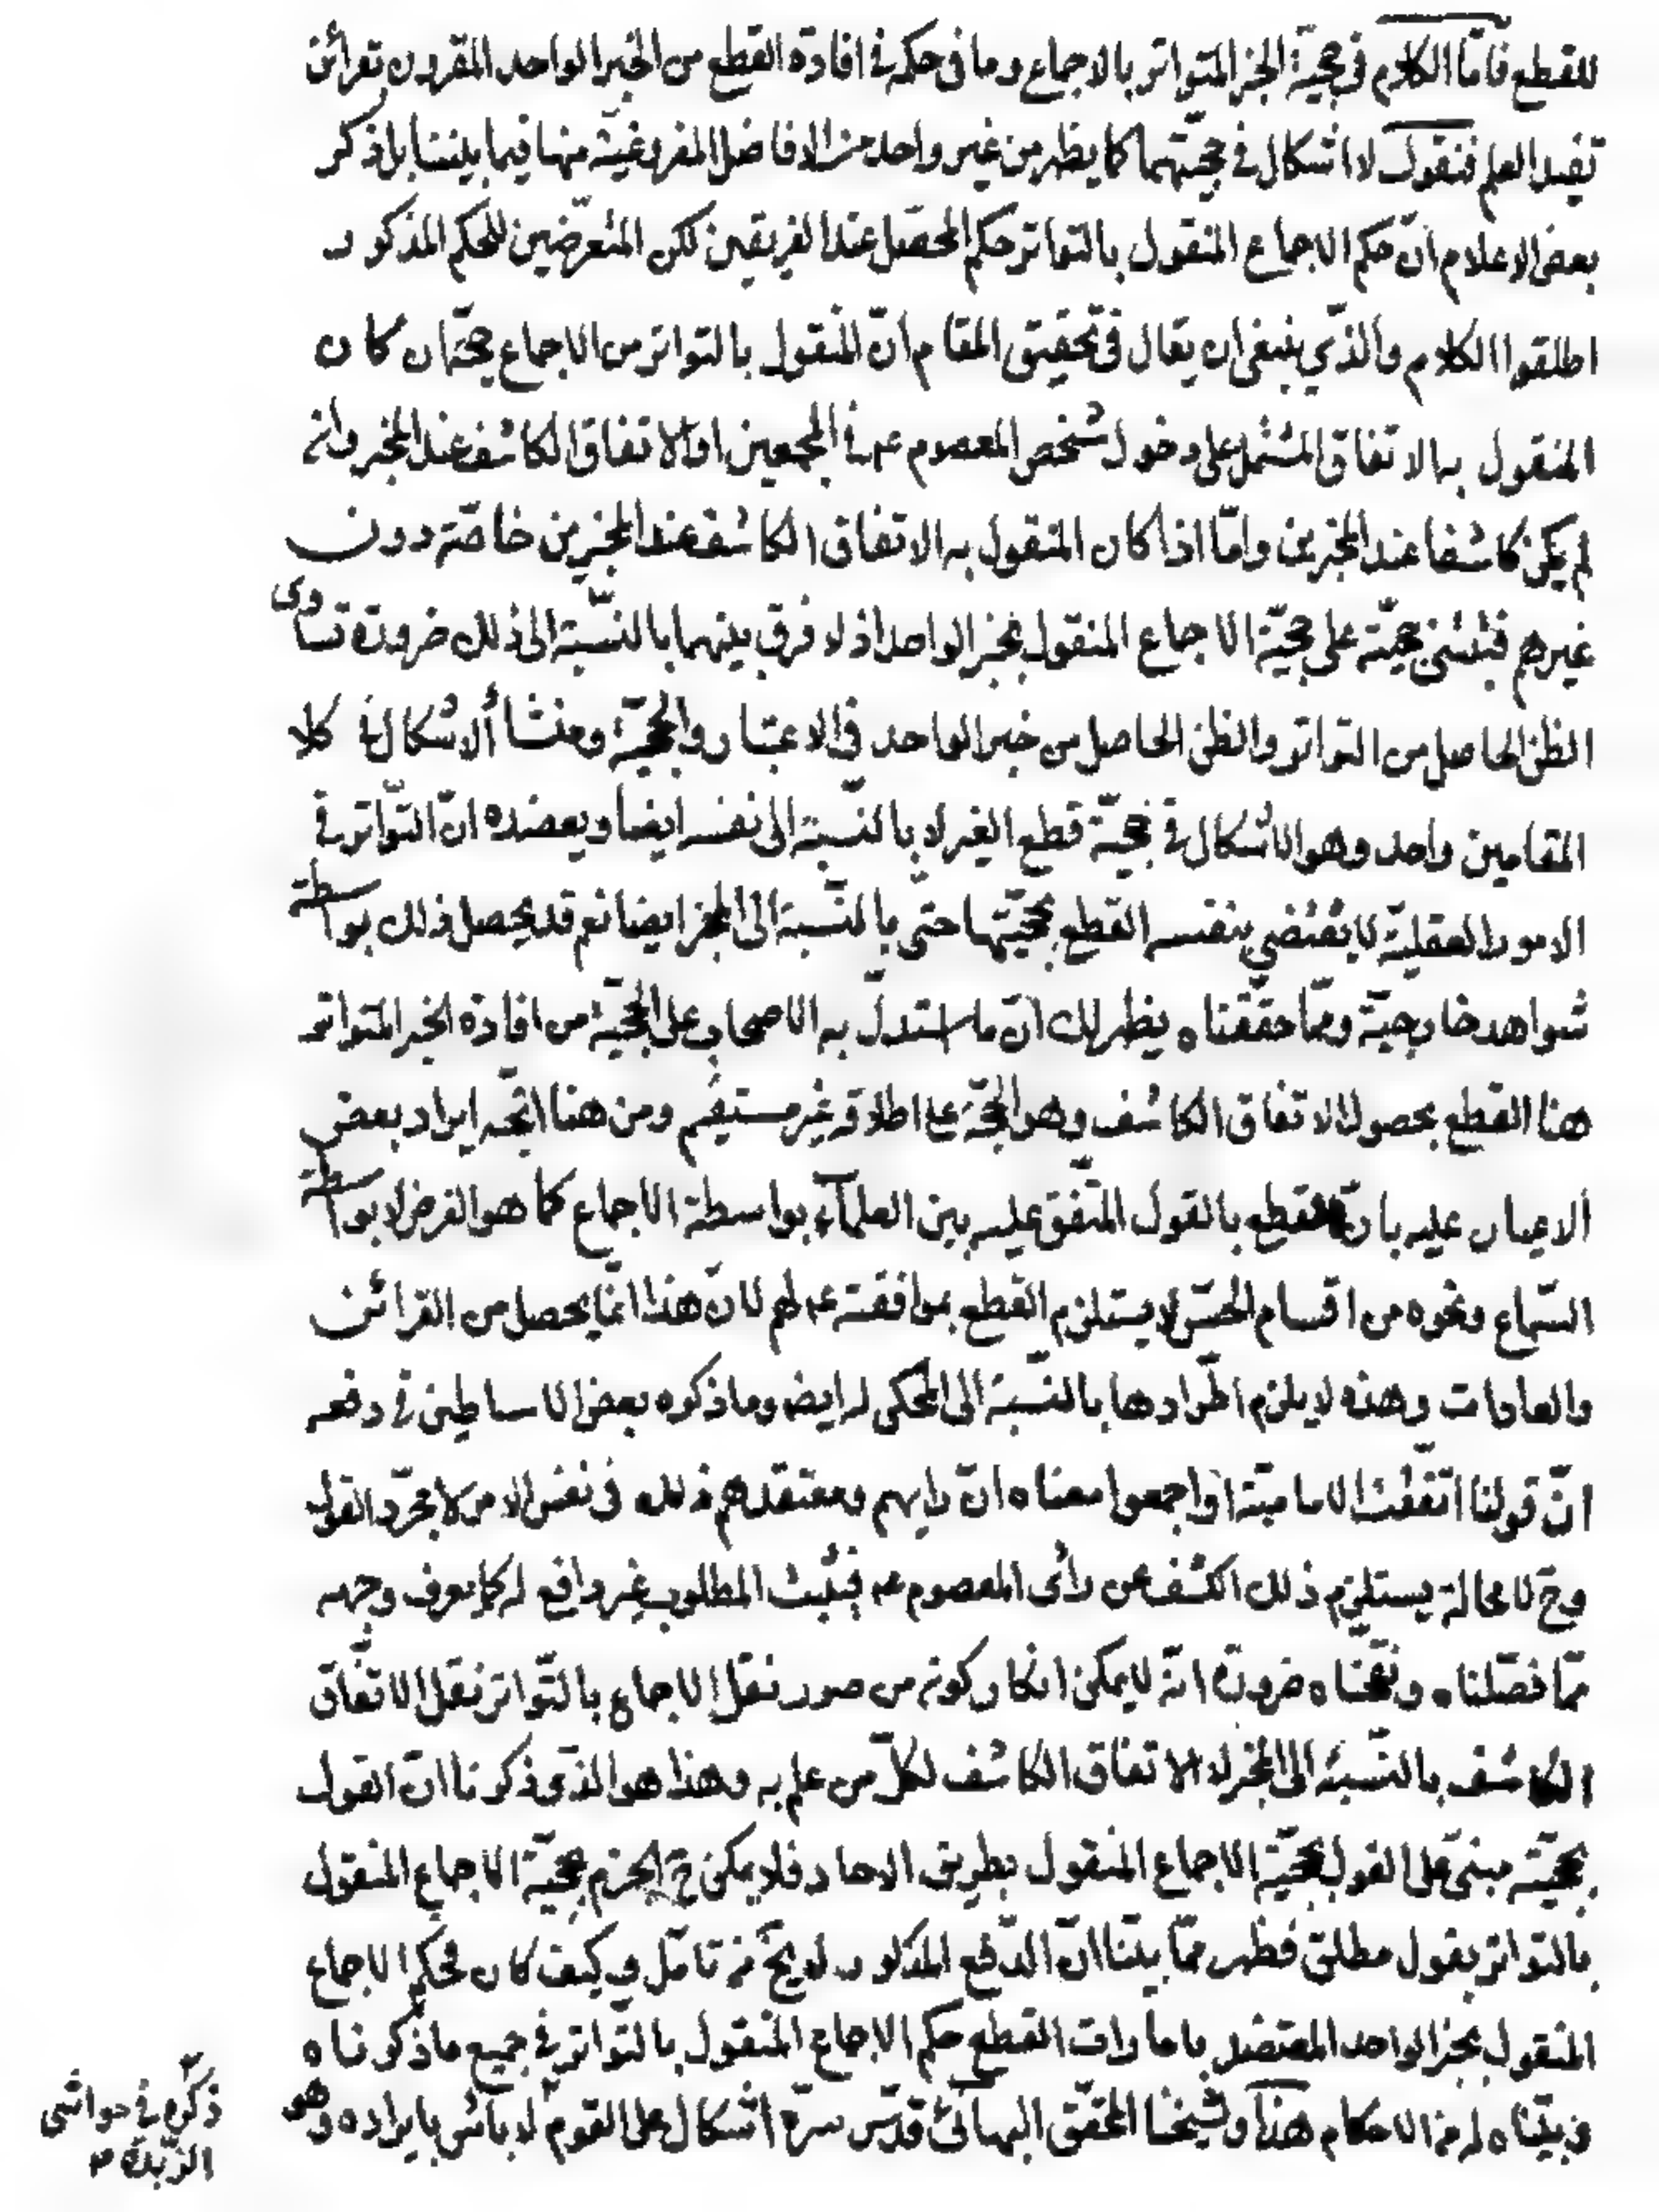 للقطع فامّا الكلام في حجيّة الخبر المتواتر بالاجماع وما في حكمه في افادة القطع من الخبر الواحد المقرون بقرائن
تفيد العلم فنقول لا اشكال في حجيّتهما كما يظهر من غير واحد من الافاضل المفروغيّة منها فيما بيننا بل ذكر
بعض الاعلام انّ حكم الاجماع المنقول بالتواتر حكم المحصّل عند الفريقين لكن المتعرّضين للحكم المذكور
اطلقوا الكلام والذّي ينبغي ان يقال في تحقيق المقام انّ المنقول بالتواتر من الاجماع حجّة ان كان
المنقول به الاتفاق المشتمل على دخول شخص المعصوم عم في المجمعين او الاتفاق الكاشف عند المخبر وانه
لم يكن كاشفا عند المخبرين وامّا اذا كان المنقول به الاتفاق الكاشف عند المخبرين خاصّة دون
غيرهم فيبتنى حجيّته على حجيّة الاجماع المنقول بخبر الواحد اذ لا فرق بينهما بالنّسبة الى ذلك ضرورة تساوى
الظن الحاصل من التواتر والظن الحاصل من خبر الواحد في الاعتبار والحجيّة ومنشأ الاشكال في كلا
المقامين واحد وهو الاشكال في حجيّة قطع الغير لا بالنّسبة الى نفسه ايضا ويعضده انّ التّواتر في
الامور العقليّة لا يقتضي بنفسه القطع بحجيّتها حتى بالنّسبة الى المخبر ايضا نعم قد يحصل ذلك بواسطة
شواهد خارجيّة وممّا حققناه يظهر لك انّ ما استدلّ به الاصحاب على الحجيّة من افادة الخبر المتواتر
هنا القطع بحصول الاتفاق الكاشف وهو الحجّة على اطلاقه غير مستقيم ومن هنا اتّجه ايراد بعض
الاعيان عليه بانّ القطع بالقول المتّفق عليه بين العلمآء بواسطة الاجماع كما هو الفرض لا بواسطة
السّماع ونحوه من اقسام الحسّ لا يستلزم القطع بموافقته عم لهم لانّ هذا انّما يحصل من القرائن
والعادات وهذه لا يلزم اطّرادها بالنّسبة الى المحكى له ايض وما ذكره بعض الاساطين في دفعه
انّ قولنا اتّفقت الاماميّة او اجمعوا معناه انّ رايهم ومعتقدهم ذلك في نفس الامر لا مجرّد القول
وح لا محالة يستلزم ذلك الكشف عن رأى المعصوم عم فيثبت المطلوب غير دافع له كما يعرف وجهه
ممّا فصّلناه ونقّحناه ضرورة انّه لا يمكن انكار كونه من صور نقل الاجماع بالتّواتر نقل الاتفاق
الكاشف بالنّسبة الى المخبر لا الاتفاق الكاشف لكلّ من علم به وهذا هو الذّى ذكرنا انّ القول
بحجيّته مبنى على القول بحجيّة الاجماع المنقول بطريق الاحاد فلا يمكن ح الجزم بحجيّة الاجماع المنقول
بالتواتر بقول مطلق فظهر ممّا بيّنا انّ الدّفع المذكور لا يخ من تامّل وكيف كان فحكم الاجماع
المنقول بخبر الواحد المعتضد بامارات القطع حكم الاجماع المنقول بالتّواتر في جميع ما ذكرناه
وبيّناه له من الاحكام هذا وشيخنا المحقّق البهائي قدّس سرّه اشكال على القوم لا باس بايراده وهو
ذكره في حواشى
الزّبدة